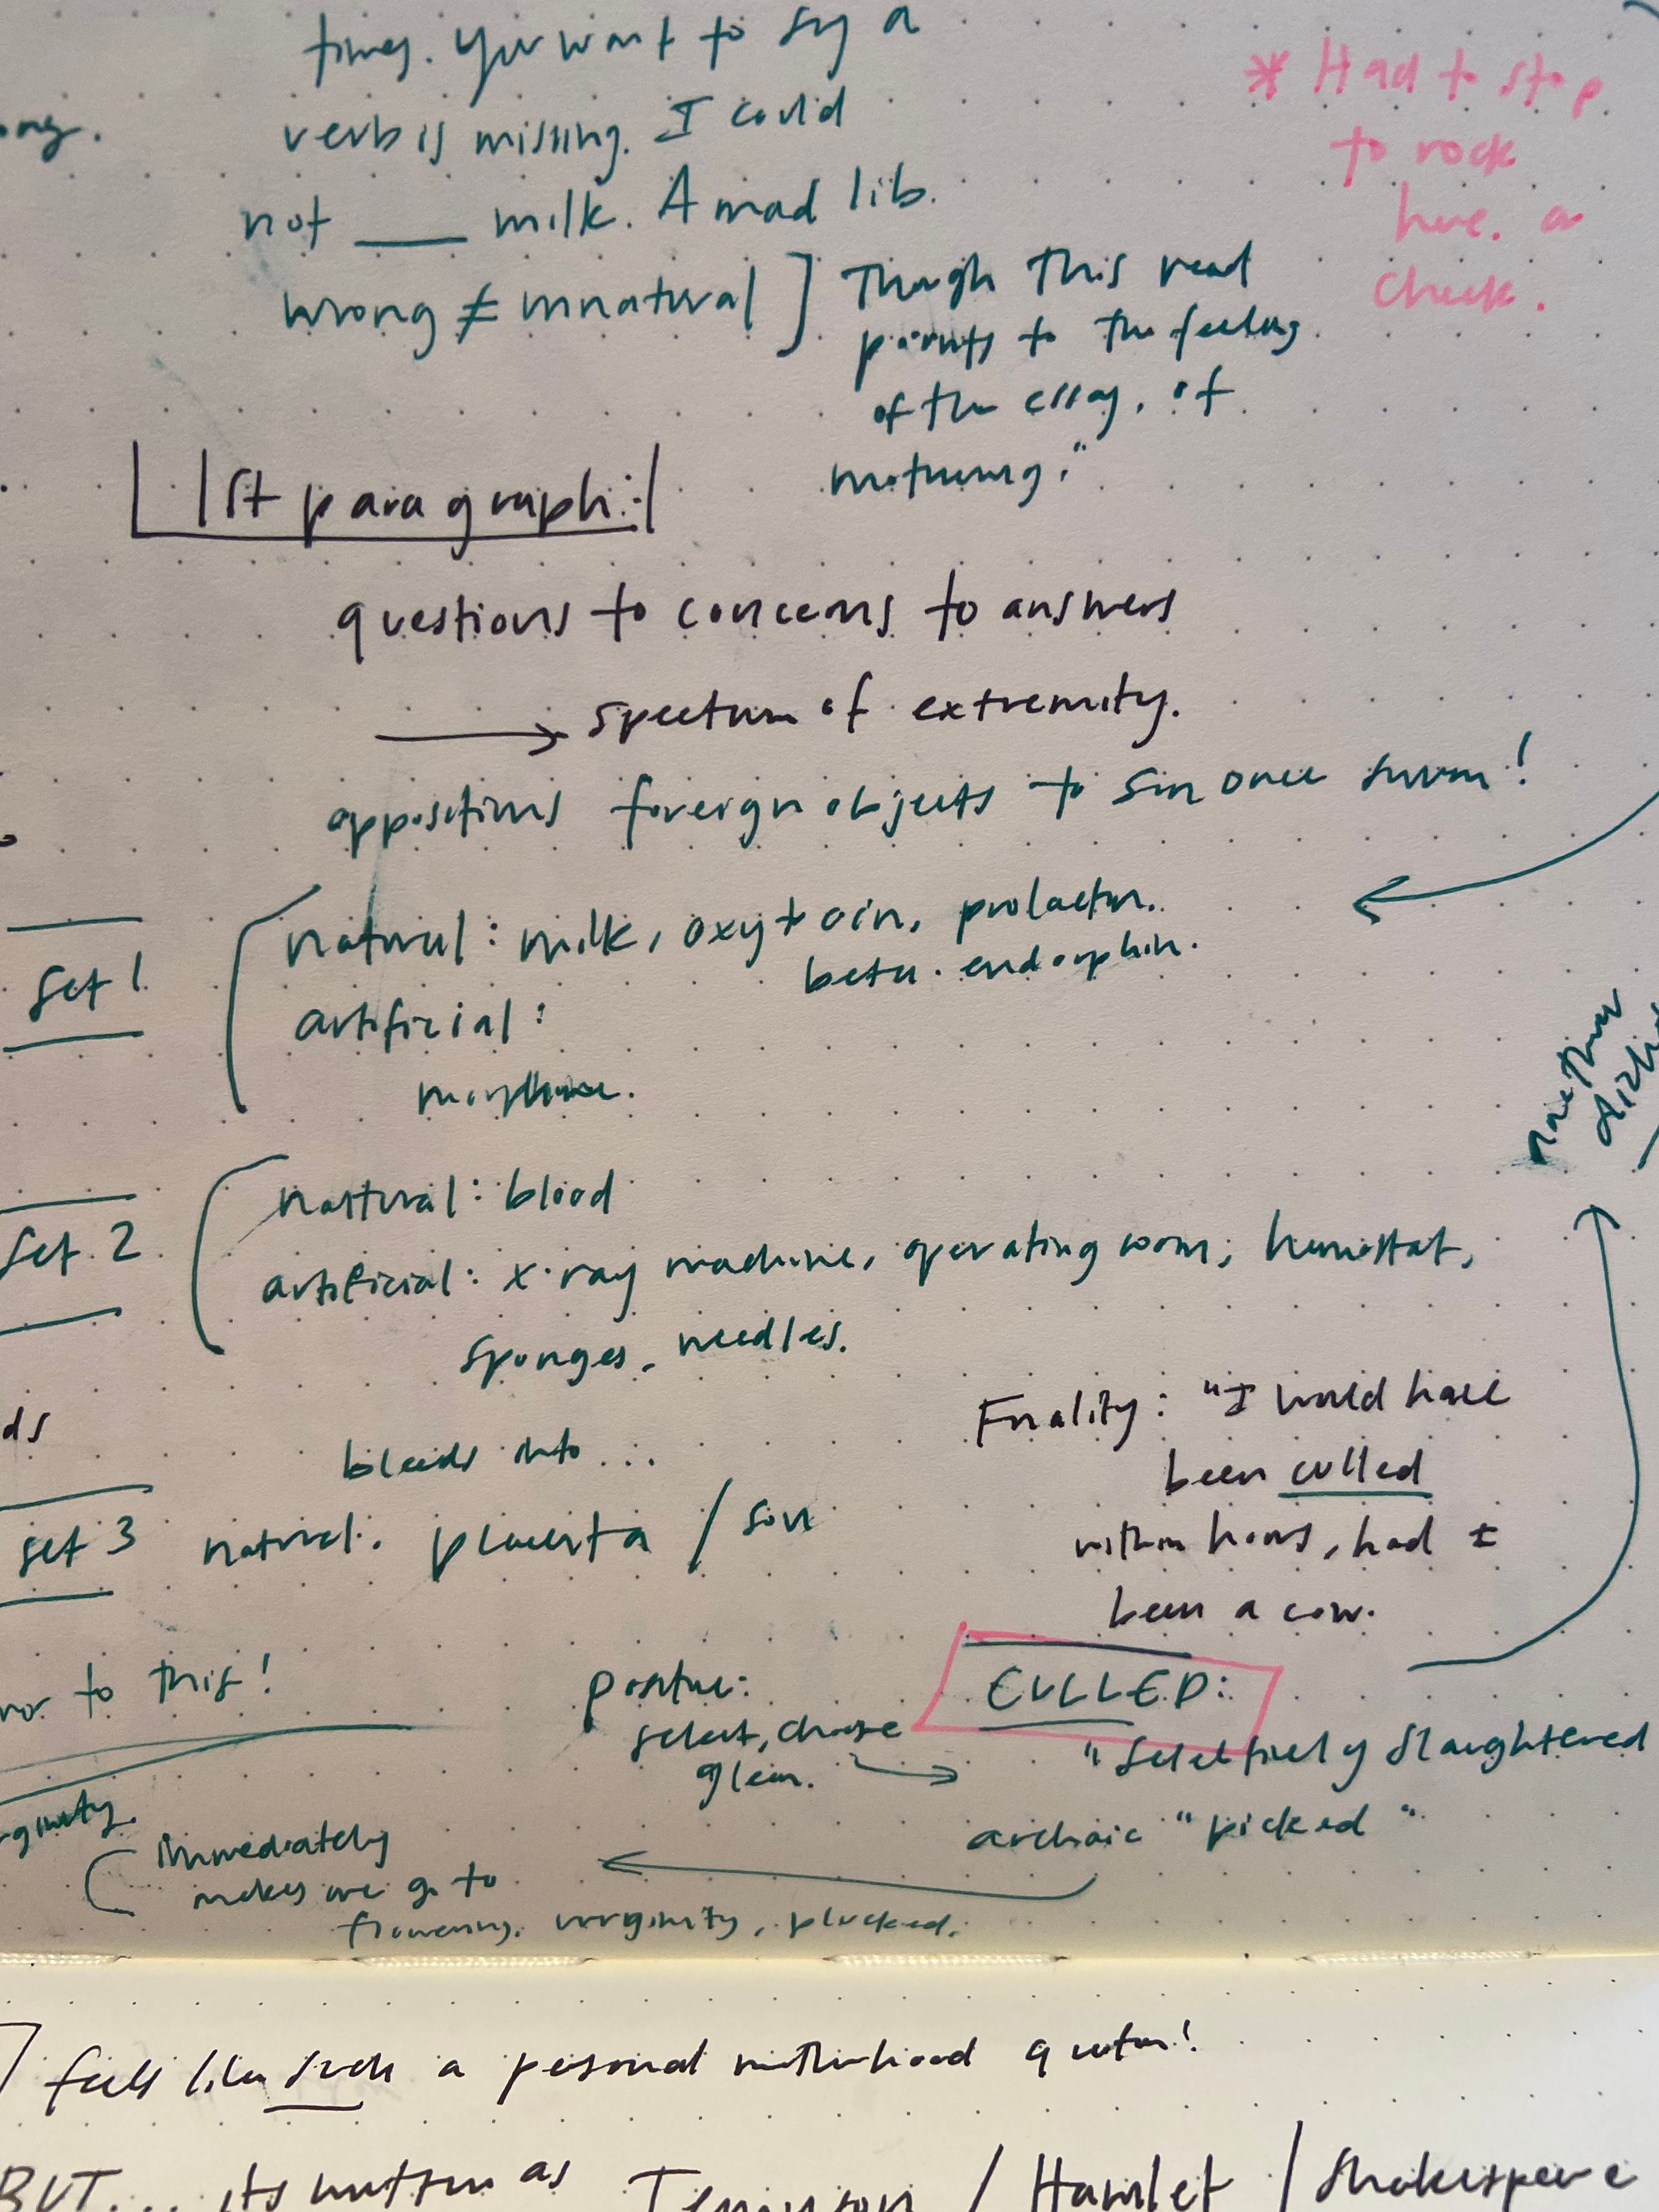 times. You want to say a
verb is missing. I could
not ___ milk. A mad lib.
wrong ≠ unnatural ] Though this read
points to the feeling
of the essay, of
mothering."
* Had to stop
to rock
here. a
check.
ong.
1st paragraph:
questions to concerns to answers
→ spectrum of extremity.
oppositions foreign objects to sin once
set 1
natural: milk, oxytocin, prolactin.
beta-endorphin.
artificial:
morphine.
set 2
natural: blood
artificial: x-ray machine, operating room, hemostat,
sponges, needles.
ds
bleeds into...
set 3 natural: placenta / son
Finality: "I would have
been culled
within hours, had I
been a cow.
to this!
positive:
select, choose
glean.
CULLED:
"selectively slaughtered
archaic "picked"
immediately
makes me go to
flowering, virginity, plucked.
feels like such a personal motherhood
BUT... its written as Tennyson / Hamlet / Shakespeare